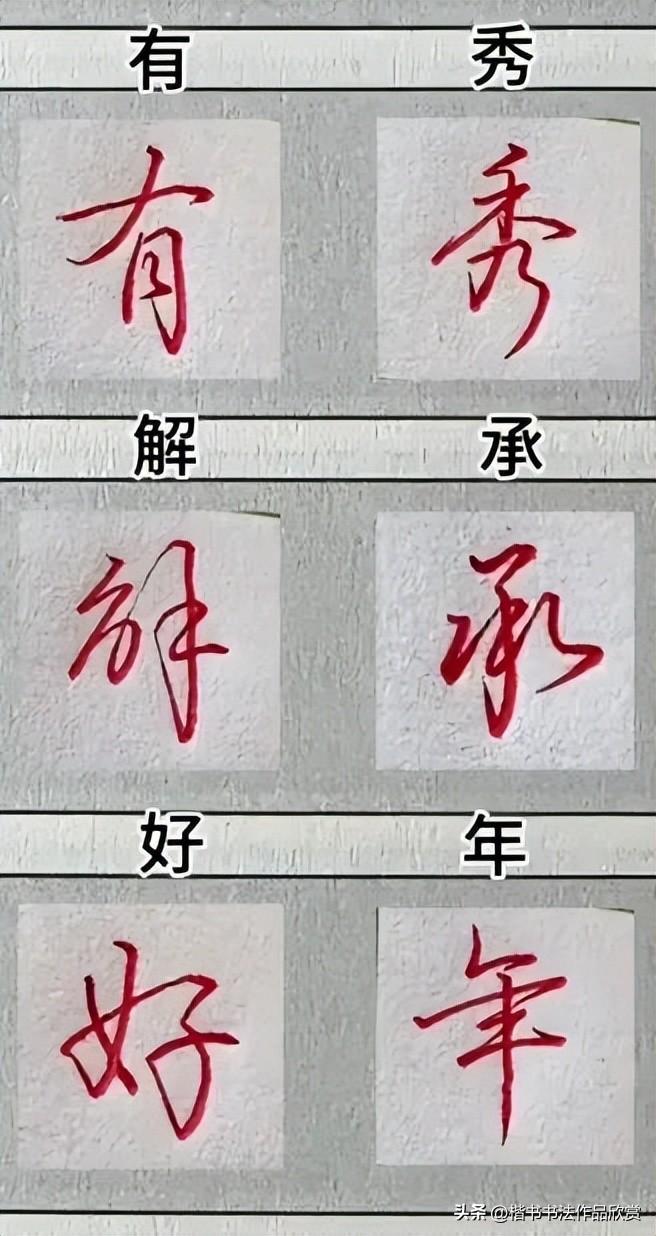 有 秀
有 秀
解 承
解 承
好 年
好 年
头条 @楷书书法作品欣赏